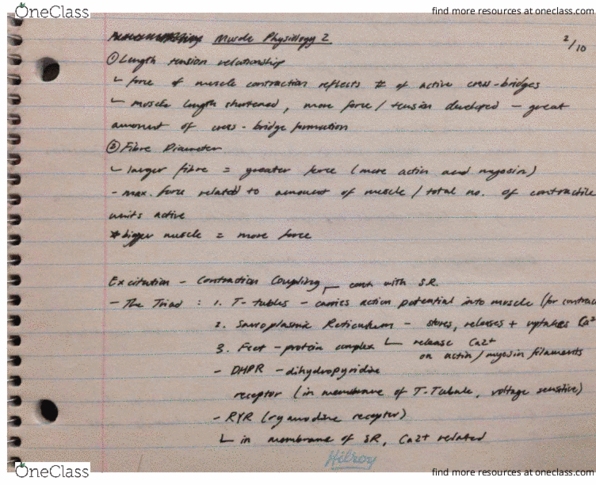 OneClass
find more resources at oneclass.com
Muscle Physiology 2
2/10
① Length tension relationship
↳ force of muscle contraction reflects # of active cross-bridges
↳ muscle length shortened, more force / tension developed - great
amount of cross-bridge formation
② Fibre Diameter
↳ larger fibre = greater force (more actin and myosin)
- max. force related to amount of muscle / total no. of contractile
units active
* bigger muscle = more force
Excitation - Contraction Coupling
with SR.
- The Triad : 1. T-tubules - carries action potential into muscle (for contrac
2. Sarcoplasmic Reticulum - stores, releases + uptakes Ca2
3. Feet - protein complex ↳ release Ca2+
on actin / myosin filaments
- DHPR - dihydropyridine
receptor (in membrane of T-Tubule, voltage sensitive)
- RYR (ryanodine receptor)
↳ in membrane of SR, Ca2+ related
Hilroy
OneClass
find more resources at oneclass.com